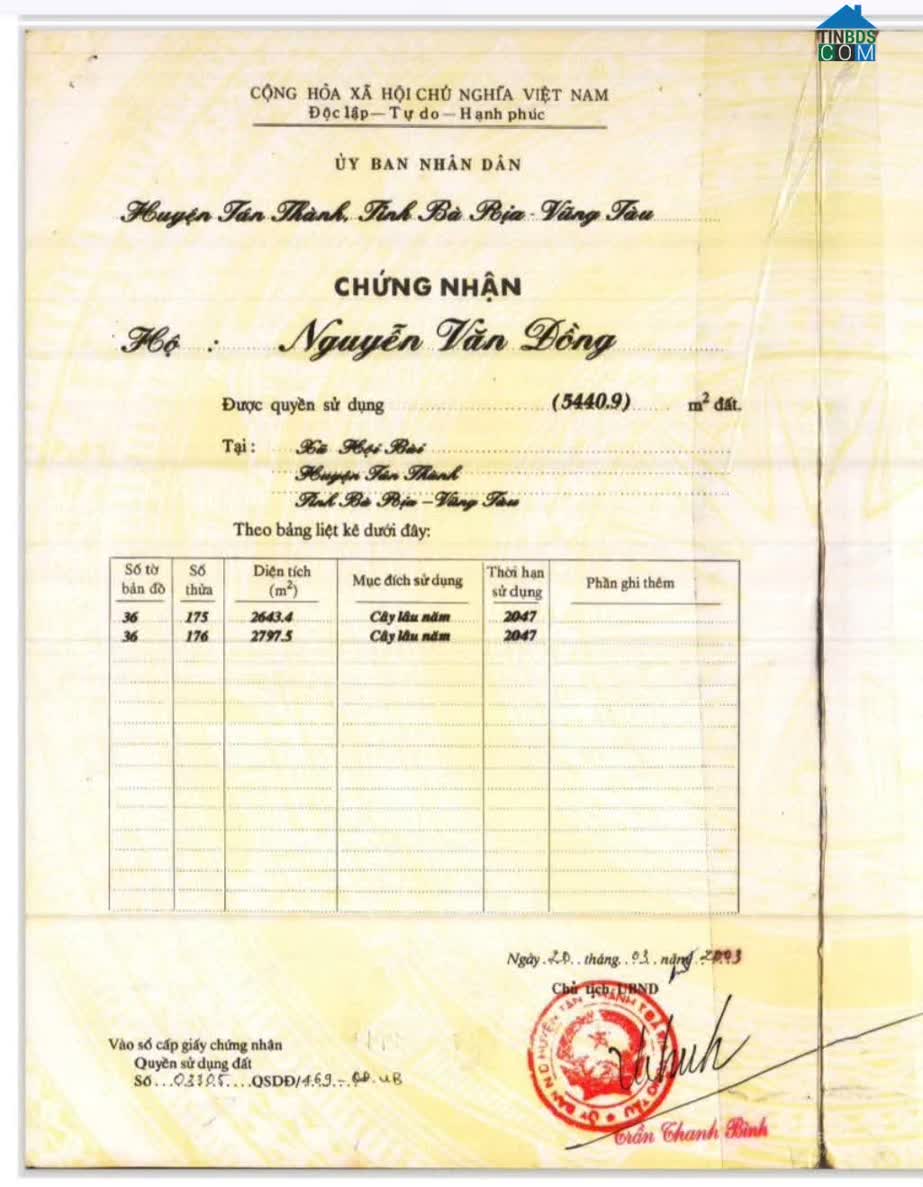 TINBDS
COM
CỘNG HÒA XÃ HỘI CHỦ NGHĨA VIỆT NAM
Độc lập — Tự do — Hạnh phúc
ỦY BAN NHÂN DÂN
Huyện Tân Thành, Tỉnh Bà Rịa - Vũng Tàu
CHỨNG NHẬN
Hộ : Nguyễn Văn Đồng
Được quyền sử dụng (5440.9) m² đất.
Tại : Xã Hội Bài
Huyện Tân Thành
Tỉnh Bà Rịa – Vũng Tàu
Theo bảng liệt kê dưới đây:
Số tờ bản đồ Số thửa Diện tích (m²) Mục đích sử dụng Thời hạn sử dụng Phần ghi thêm
36 175 2643.4 Cây lâu năm 2047
36 176 2797.5 Cây lâu năm 2047
Ngày 20 tháng 03 năm 2003
Chủ tịch UBND
Vào sổ cấp giấy chứng nhận
Quyền sử dụng đất
Số 03305 QSDĐ/169.-QĐ.UB
Trần Thanh Bình